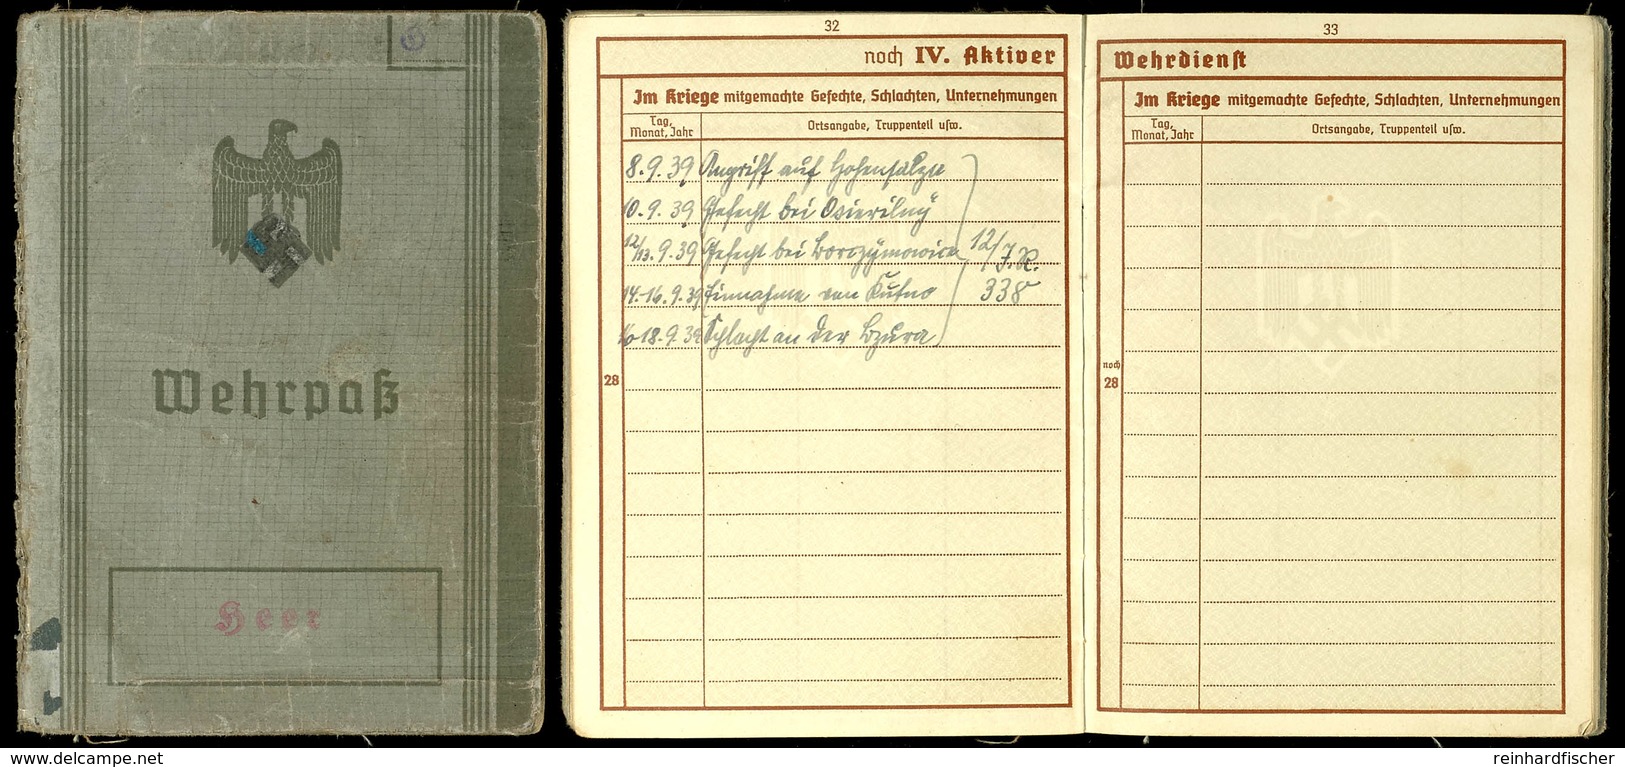 Wehrpaß
Heer
32
noch IV. Aktiver
Im Kriege mitgemachte Gefechte, Schlachten, Unternehmungen
Tag, Monat, Jahr
Ortsangabe, Truppenteil usw.
8.9.39 Angriff auf Hohensalza
10.9.39 Gefecht bei
12/13.9.39 Gefecht bei
14.-16.9.39 Einnahme von Kutno
16-18.9.39 Schlacht an der Bzura
12/J.R.
338
28
33
Wehrdienst
Im Kriege mitgemachte Gefechte, Schlachten, Unternehmungen
Tag, Monat, Jahr
Ortsangabe, Truppenteil usw.
noch
28
www.delcampe.net
reinhardfischer